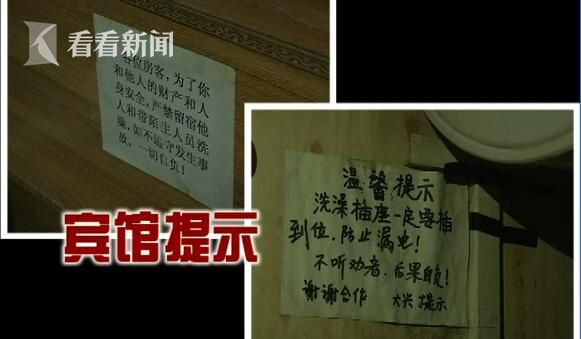 看看新闻
各位房客，为了你
和他人的财产和人
身安全，严禁留宿他
人和带陌生人员洗
澡，如不遵守发生事
故，一切自负！
宾馆提示
温馨提示
洗澡插座一定要插
到位，防止漏电！
不听劝者，后果自负！
谢谢合作 大兴提示